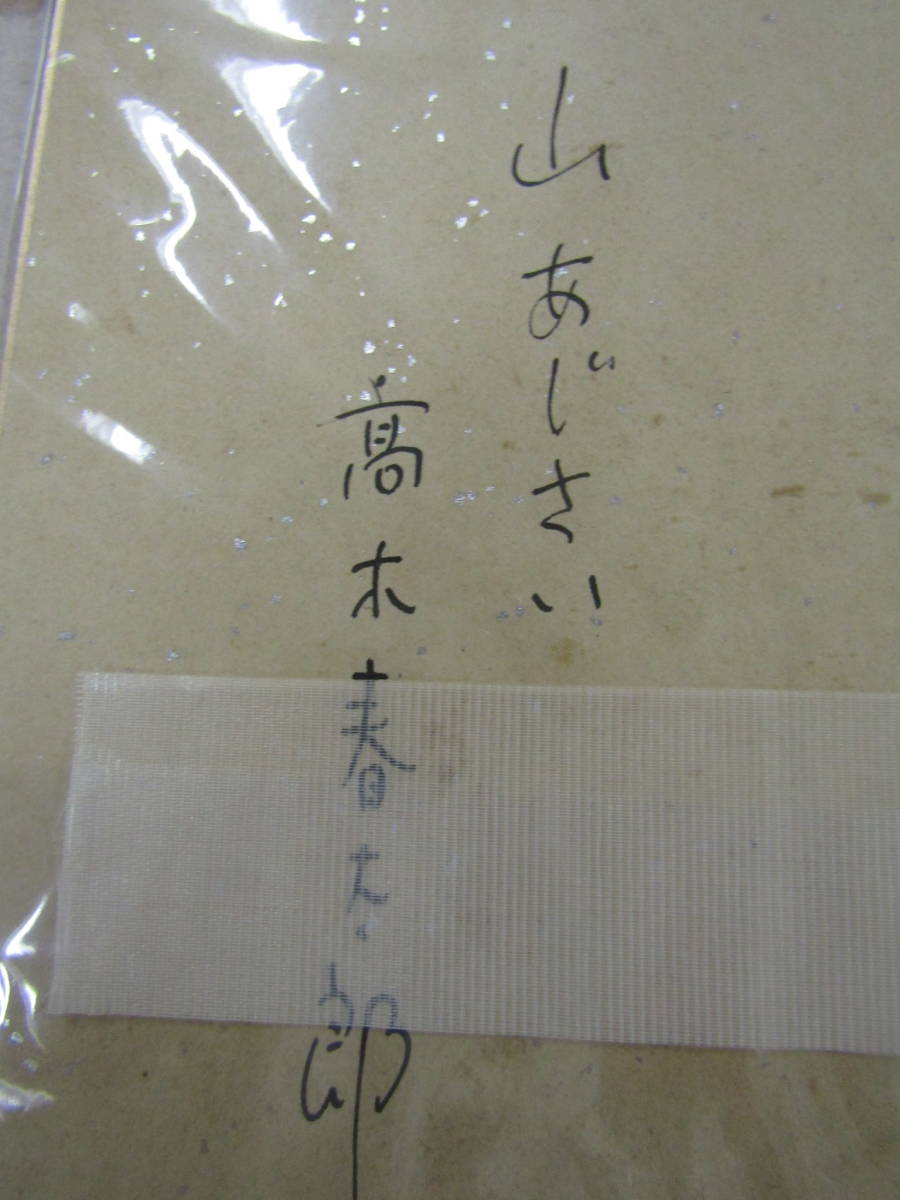 山あじさい
高木春太郎